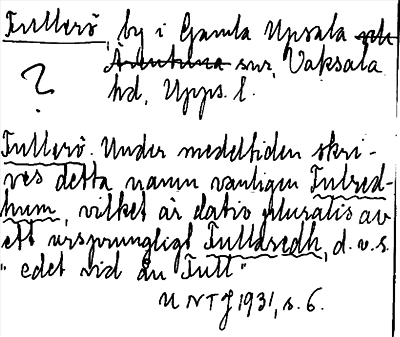 Fullerö, by i Gamla Upsala och
Ärentuna snr, Vaksala
? hd, Upps. l.
Fullerö. Under medeltiden skri-
ves detta namn vanligen Fulred-
hum, vilket är dativ pluralis av
ett ursprungligt Fulldredh, d.v.s.
" edet vid ån Full"
UNTJ 1931, s. 6.